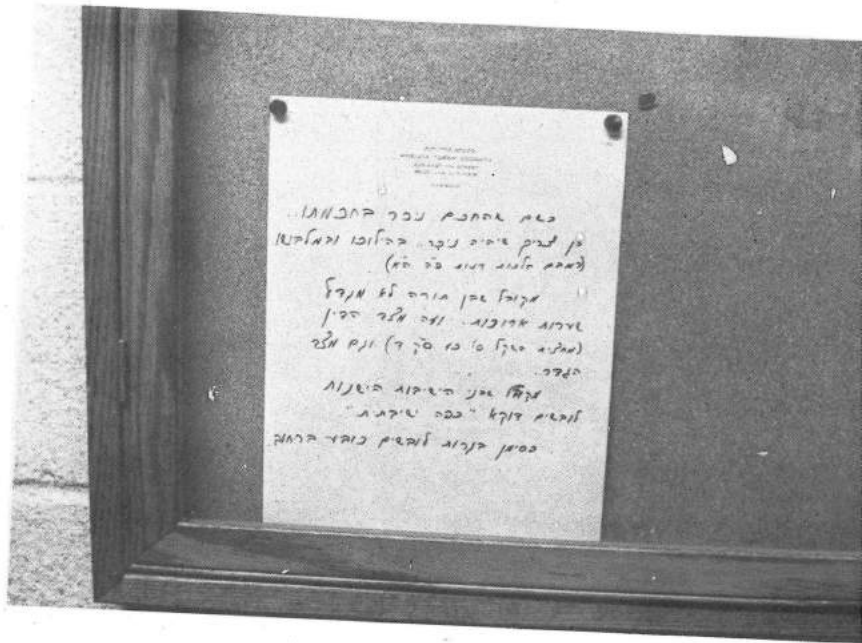 כשם שהחכם ניכר בחכמתו..
כן צריך שיהיה ניכר.. בהילוכו ובמלבושו
(רמב"ם הלכות דעות פ"ה ה"א)
מקובל שבן תורה לא מגדל
שערות ארוכות. וזה מצד הדין
(מחצית השקל סי' כז ס"ק ד) וגם מצד
הגדר.
מקובל שבני הישיבות הישנות
לובשים דוקא "כפה ישיבתית"
כסימן בגרות לובשים כובע ברחוב